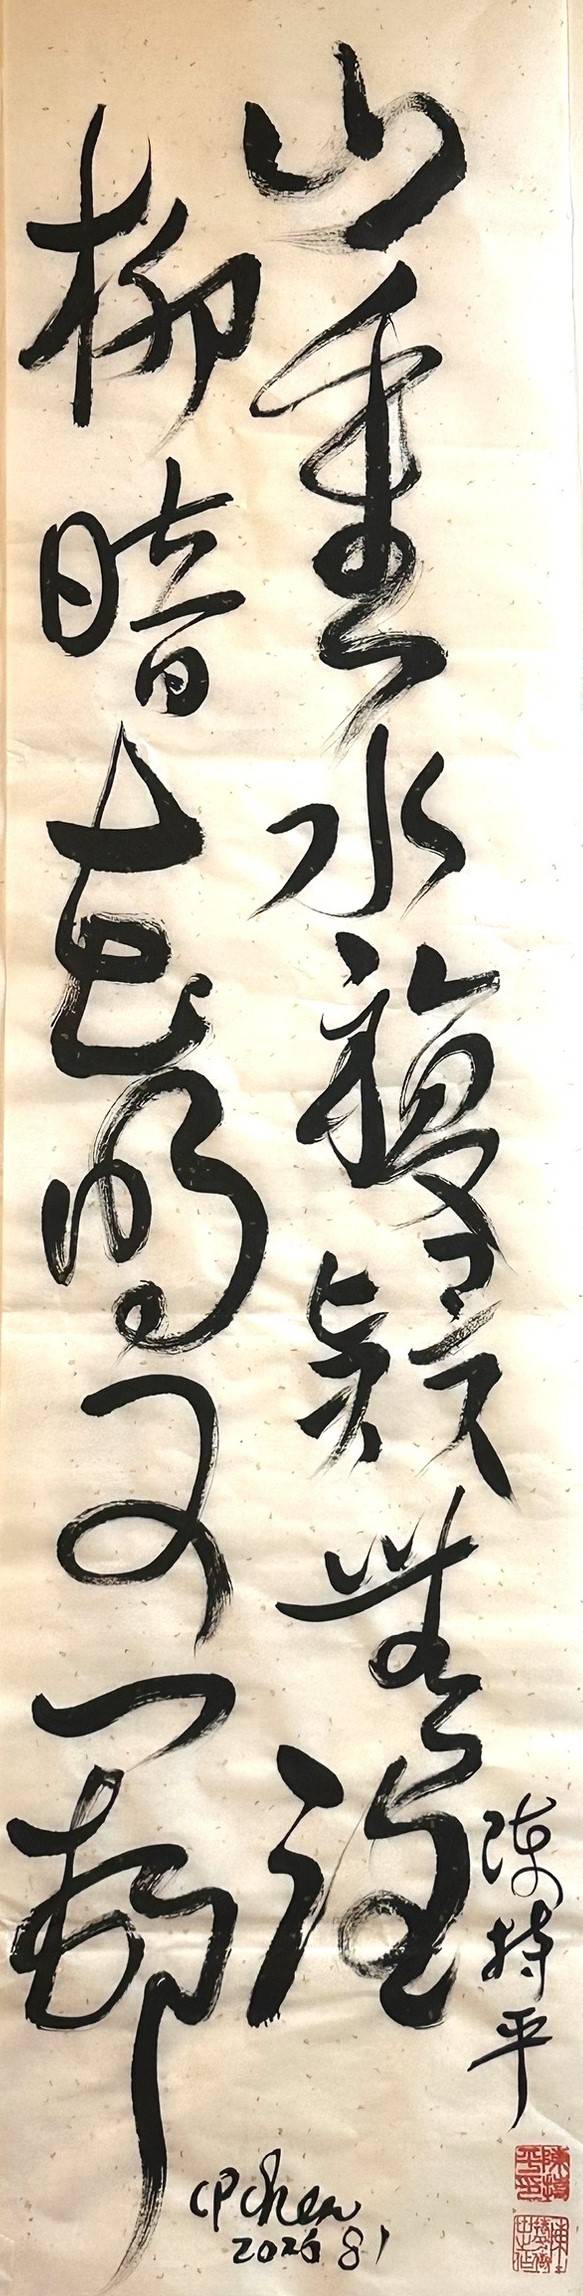 山重水複疑無路
柳暗花明又一邨
陳持平
CPChen
2026 81
陳持平印